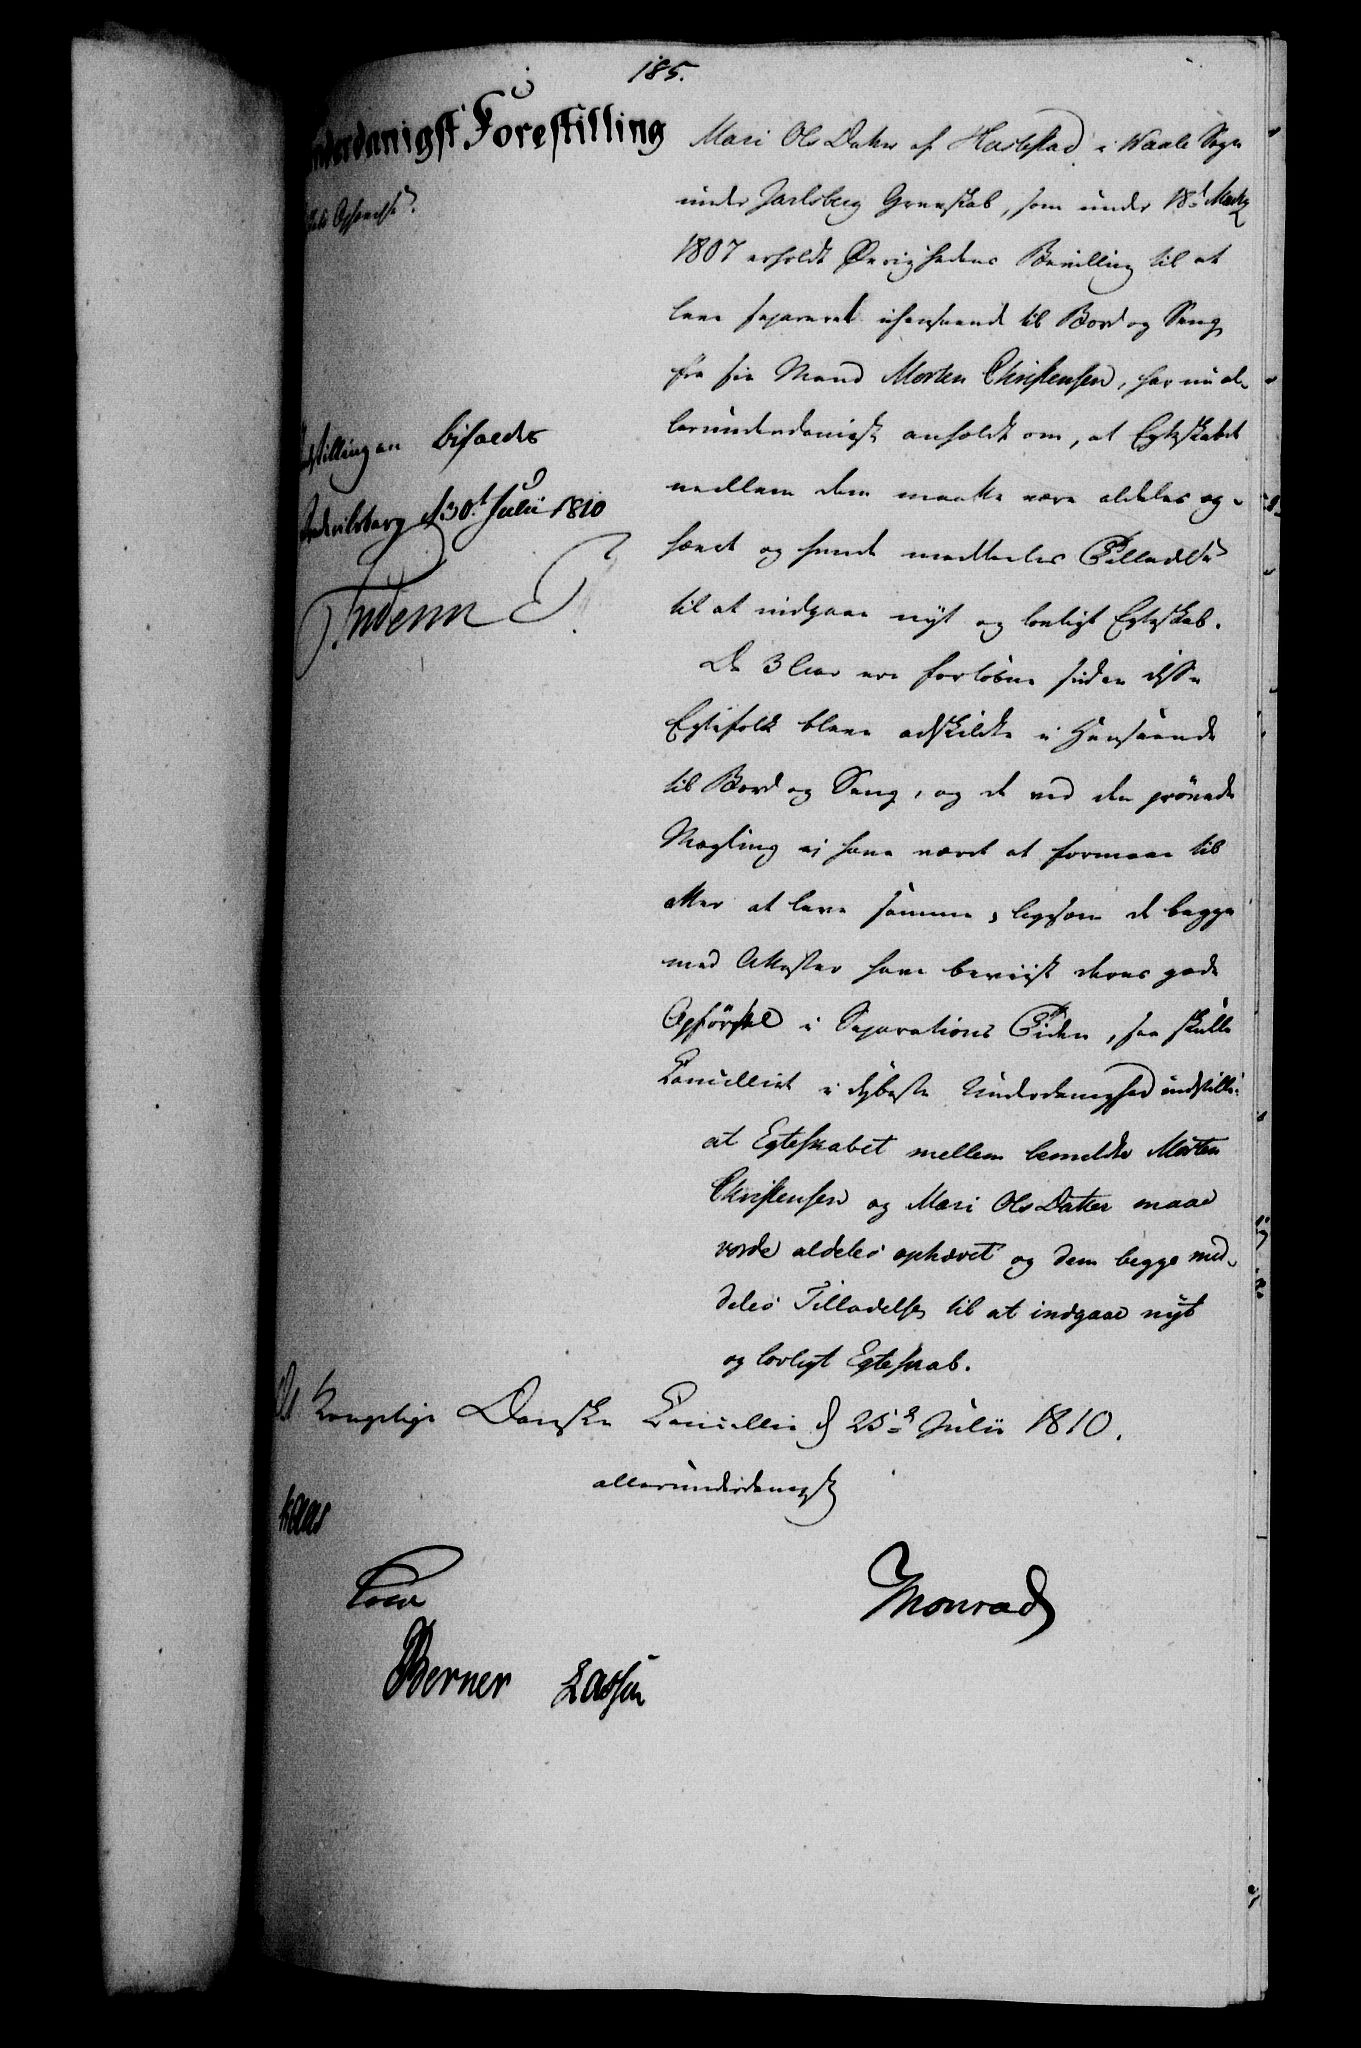 185.
underdanigst Forestilling
Indstillingen bifaldes
Frederiksberg d 30t Julii 1810
Frederik R
Mari OlsDatter af Haslestad i Waale Sogn
under Jarlsberg Grevskab, som under 18d Marty
1807 erholdt Øvrighedens Bevilling til at
leve separeret i henseende til Bord og Seng
fra sin Mand Morten Christensen, har nu al-
lerunderdanigst anholdt om, at Egteskabet
mellem dem maatte være aldeles op-
hævet og hende meddeles Tilladelse
til at indgaae nyt og lovligt Egteskab.
Da 3 Aar ere forløbne siden disse
Egtefolk bleve adskildte i Henseende
til Bord og Seng, og de ved den prøvede
Mægling ej have været at formaae til
atter at leve sammen, ligesom de begge
med Attester have beviist deres gode
Opførsel i Separations Tiden, saa skulle
Cancelliet i dybeste Underdanighed indstille:
at Egteskabet mellem bemeldte Morten
Christensen og Mari OlsDatter maae
vorde aldeles ophævet og dem begge med-
deles Tilladelse til at indgaae nyt
og lovligt Egteskab.
Det Kongelige Danske Cancellie d 25d Julii 1810.
allerunderdanigst
Kaas
Monrad
Berner Lassen